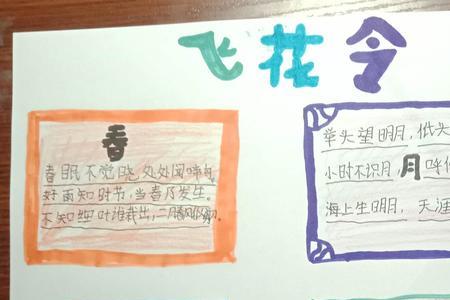 飞花令
春
春眠不觉晓,处处闻啼鸟
好雨知时节,当春乃发生。
不知细叶谁裁出,二月春风似剪刀.
举头望明月,低头
小时不识月,呼作
月
海上生明月,天涯